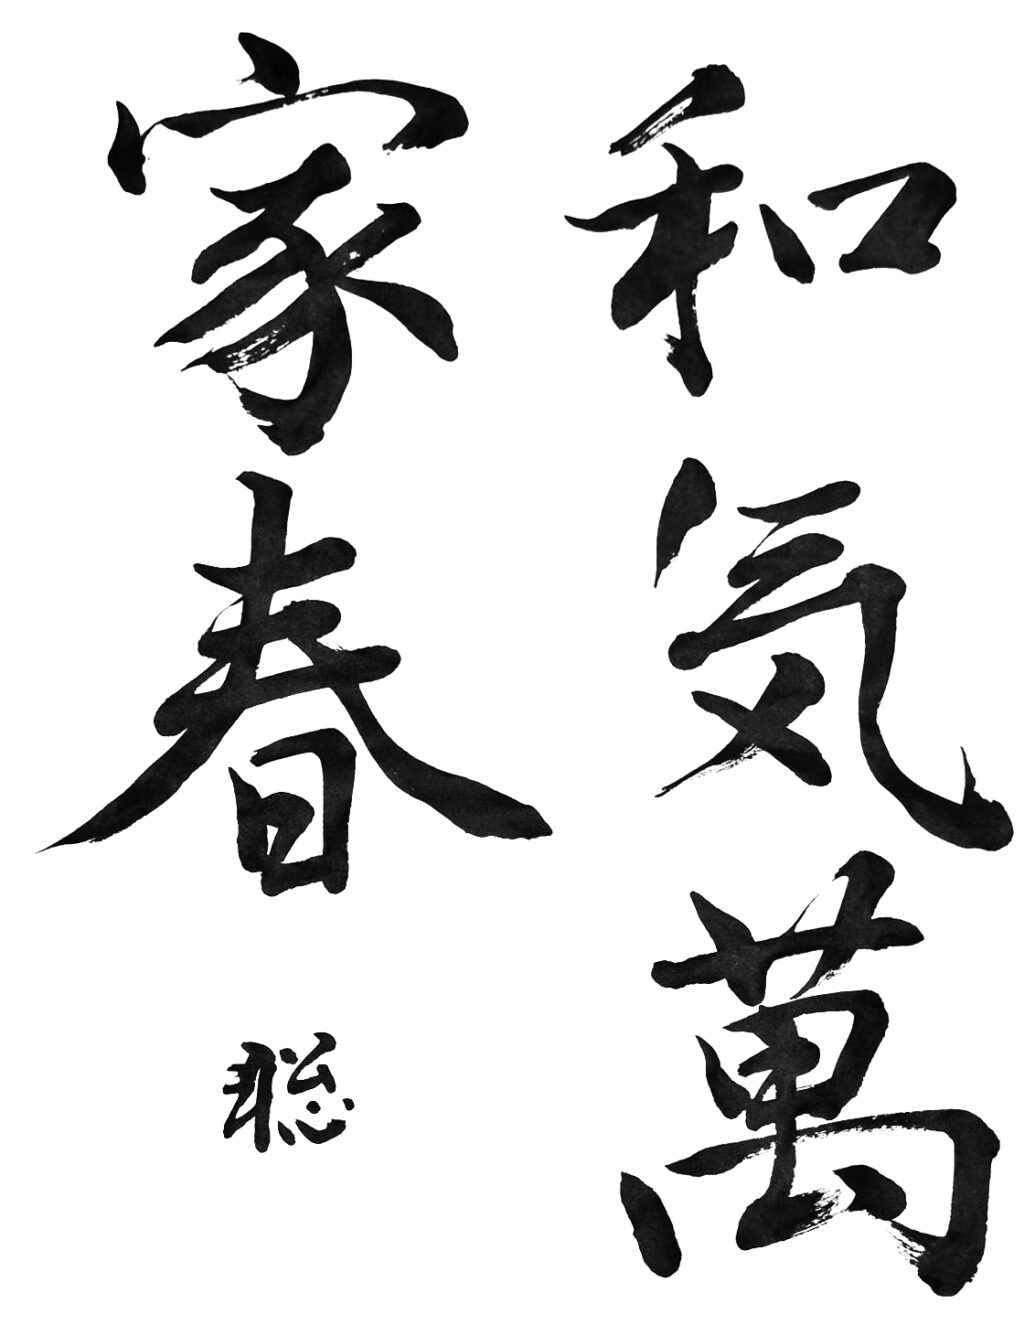 和気萬
家春
聡